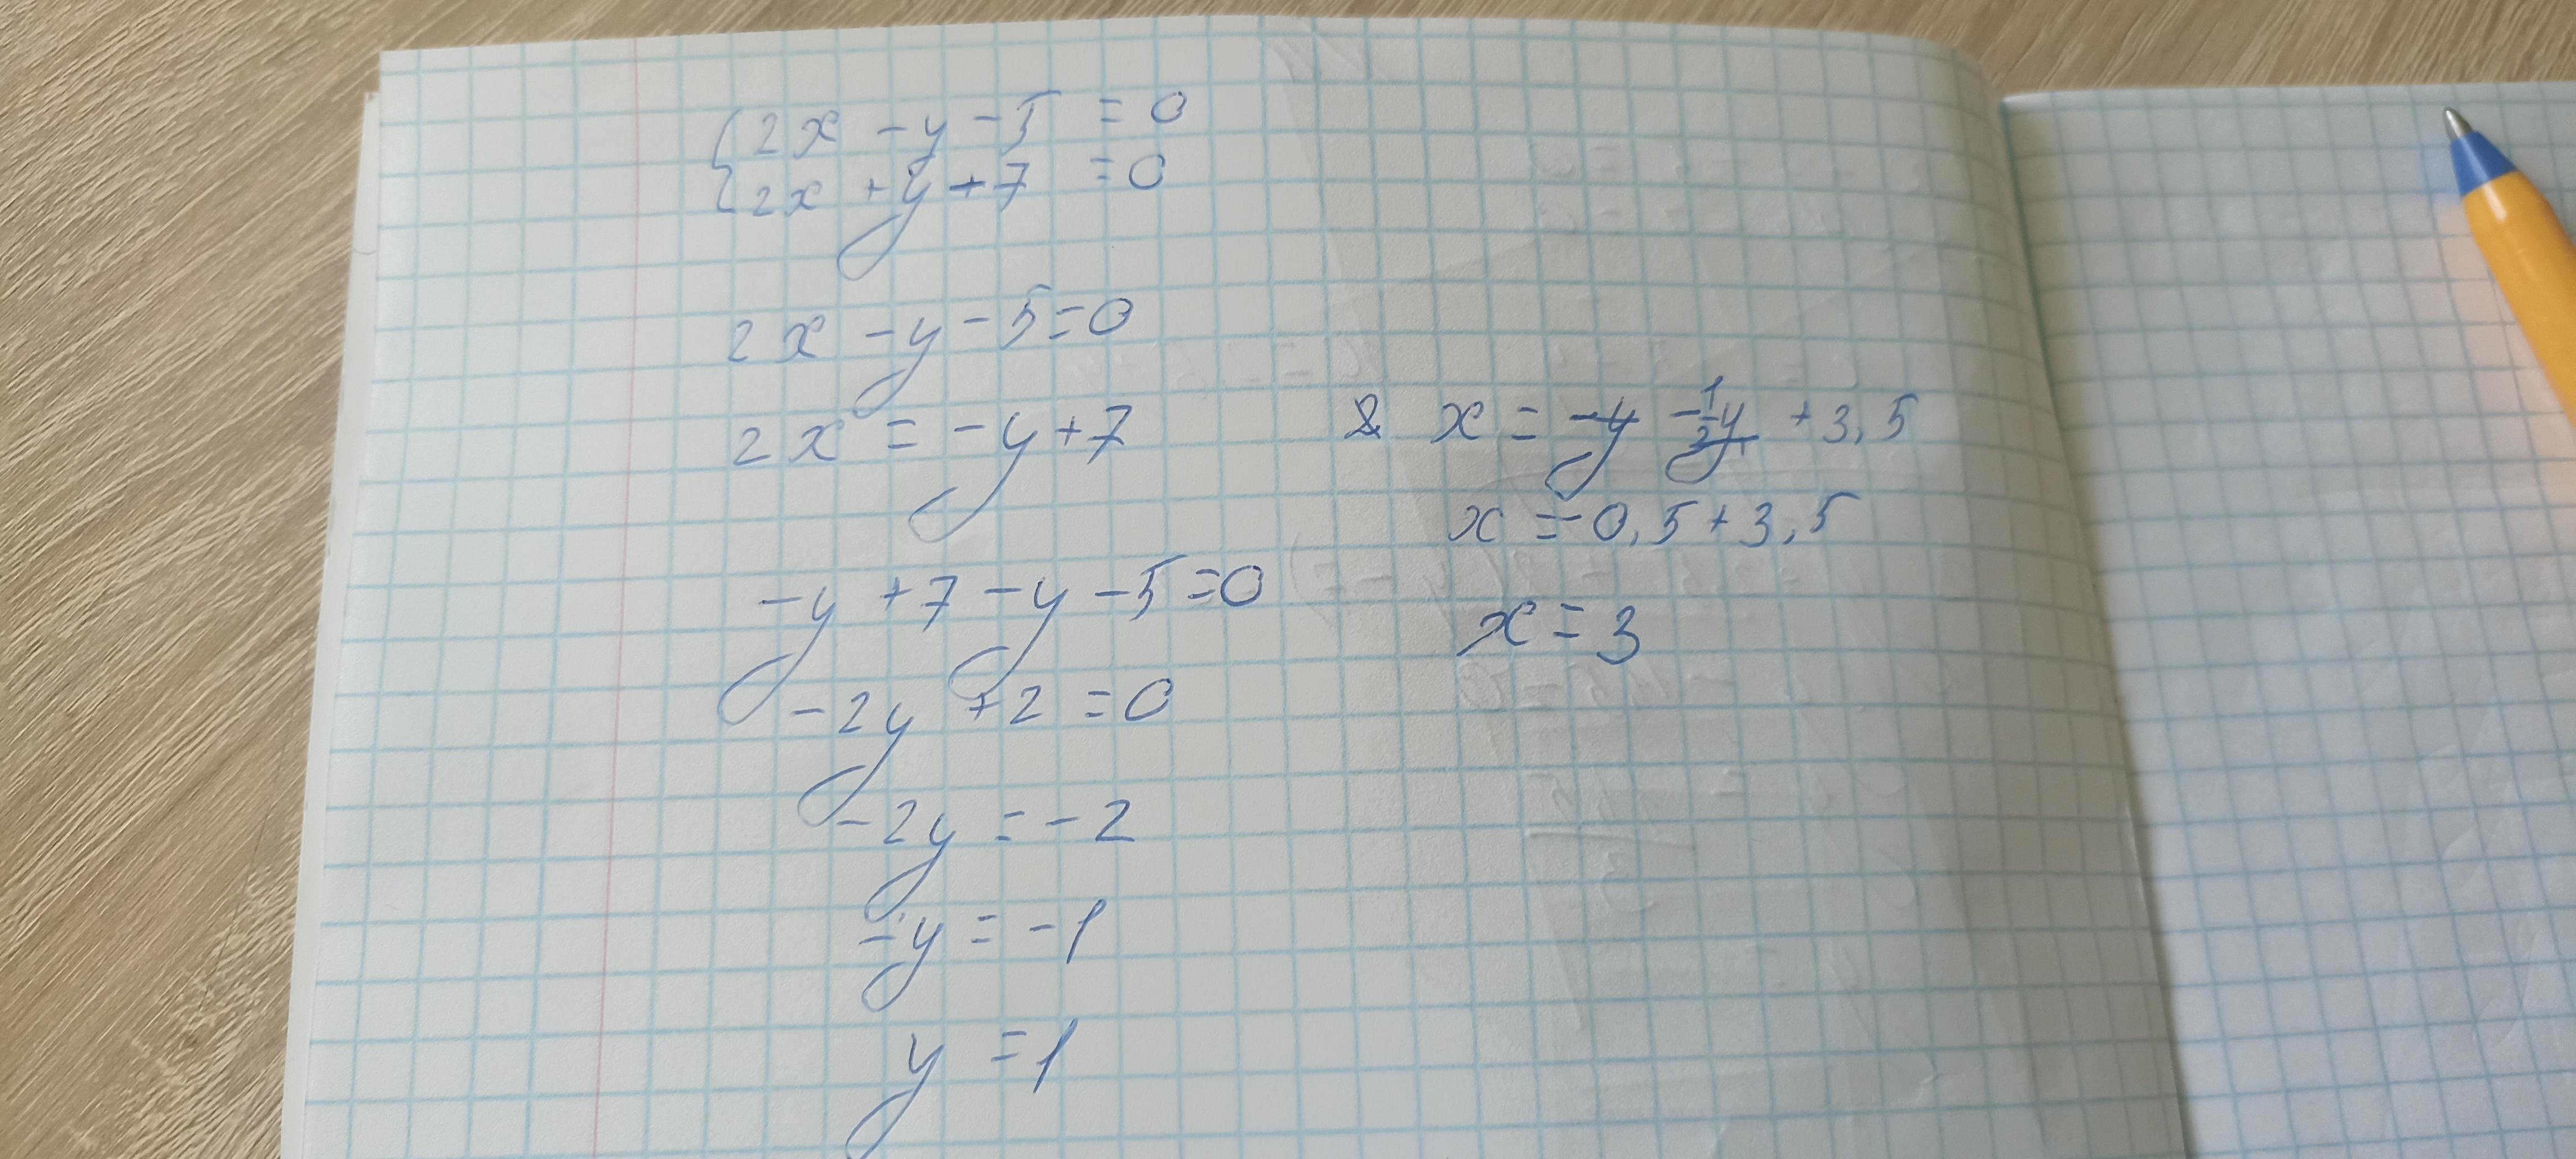 {2x - y - 5 = 0
{2x + y + 7 = 0
2x - y - 5 = 0
2x = -y + 7
-y + 7 - y - 5 = 0
-2y + 2 = 0
-2y = -2
-y = -1
y = 1
x = -y -1/2y + 3,5
x = -0,5 + 3,5
x = 3